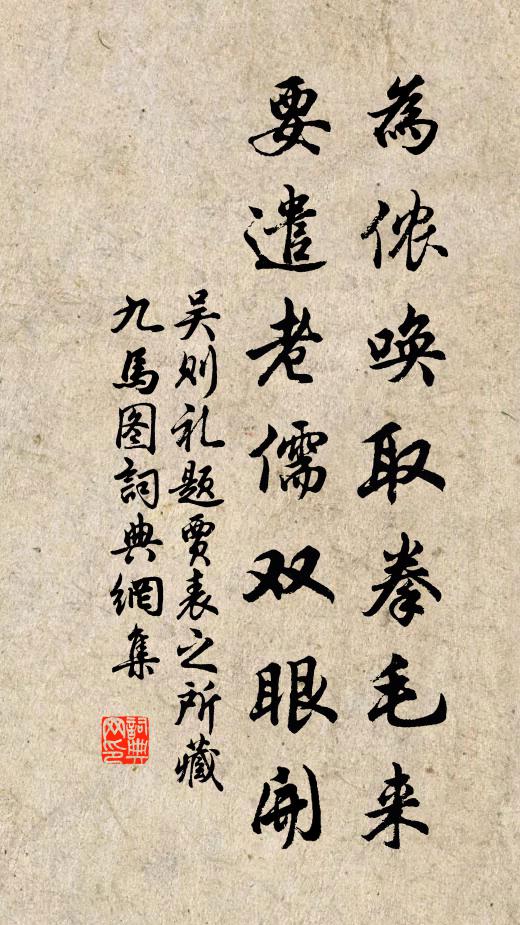 為侬唤取拳毛来
要遣老儒双眼开
吴则礼题贾表之所藏
九馬图詞典網集
詞典
网印